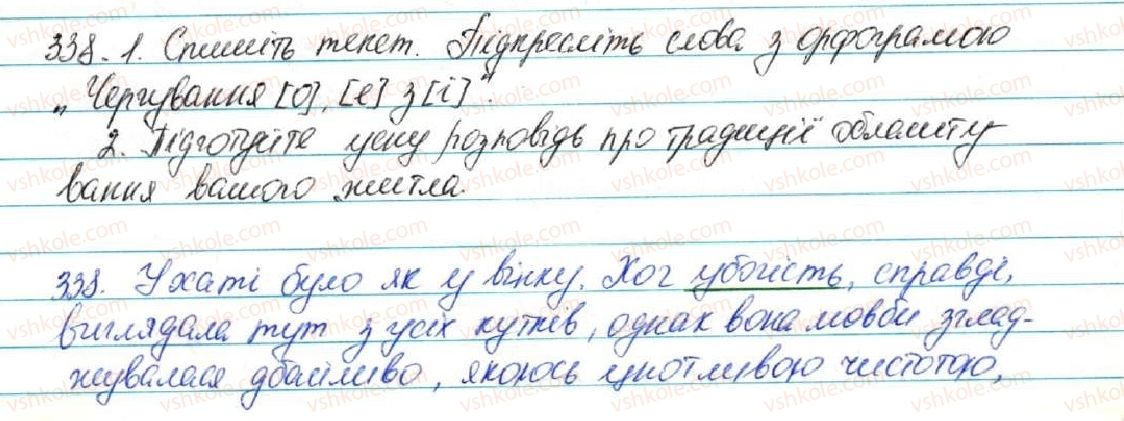 338. 1. Спишіть текст. Підкресліть слова з орфограмою
„Чергування [о], [е] з [і]".
2. Підготуйте усну розповідь про традиції облашту
вання вашого житла.
338. У хаті було як у вінку. Хоч убогість, справді,
виглядала тут з усіх кутків, однак вона мовби зглад-
жувалася дбайливо, якоюсь цнотливою чистотою,